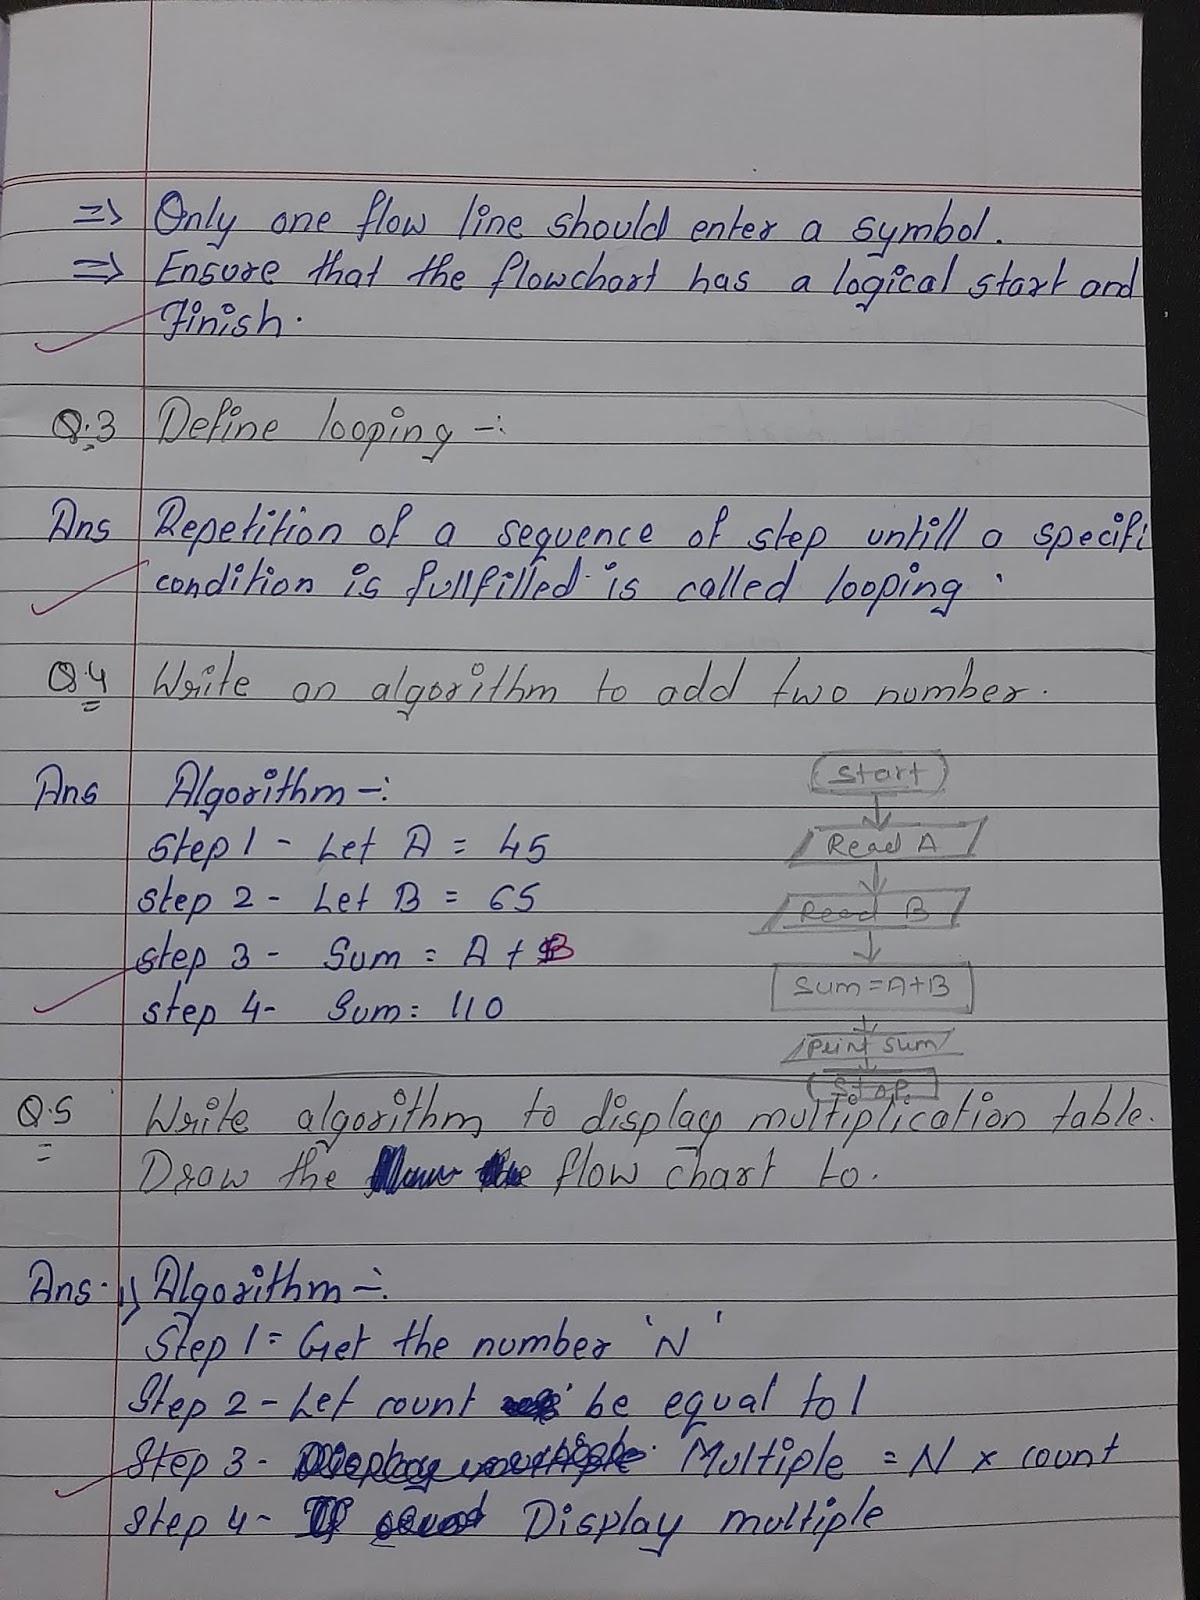 => Only one flow line should enter a symbol.
=> Ensure that the flowchart has a logical start and
finish.
Q.3 Define looping -:
Ans Repetition of a sequence of step untill a specifi
condition is fullfilled is called looping.
Q.4 Write an algorithm to add two number.
Ans Algorithm -:
Step 1 - Let A = 45
Step 2 - Let B = 65
Step 3 - Sum = A + B
Step 4 - Sum = 110
Start
Read A
Read B
Sum = A+B
Print Sum
Stop
Q.5 Write algorithm to display multiplication table.
Draw the flow chart to.
Ans. 1) Algorithm -:
Step 1 = Get the number 'N'
Step 2 - Let count be equal to 1
Step 3 - Multiple = N x count
Step 4 - Display multiple